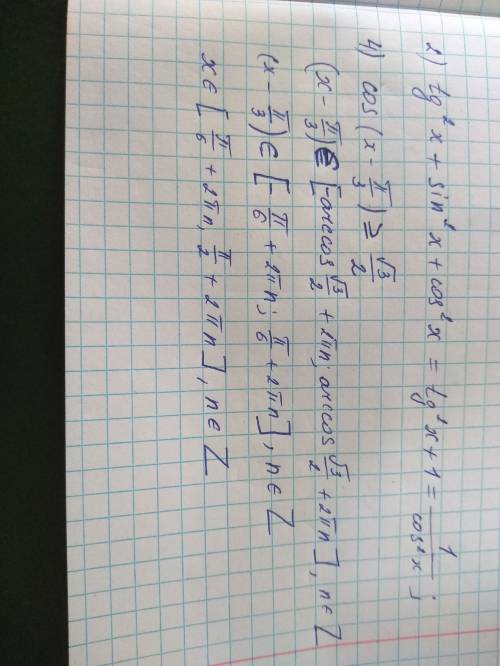 2) tg²x + sin²x + cos²x = tg²x + 1 = 1/cos²x ;
4) cos (x - π/3) ≥ √3/2
(x - π/3) ∈ [-arccos √3/2 + 2πn; arccos √3/2 + 2πn], n ∈ Z
(x - π/3) ∈ [-π/6 + 2πn; π/6 + 2πn], n ∈ Z
x ∈ [π/6 + 2πn, π/2 + 2πn], n ∈ Z